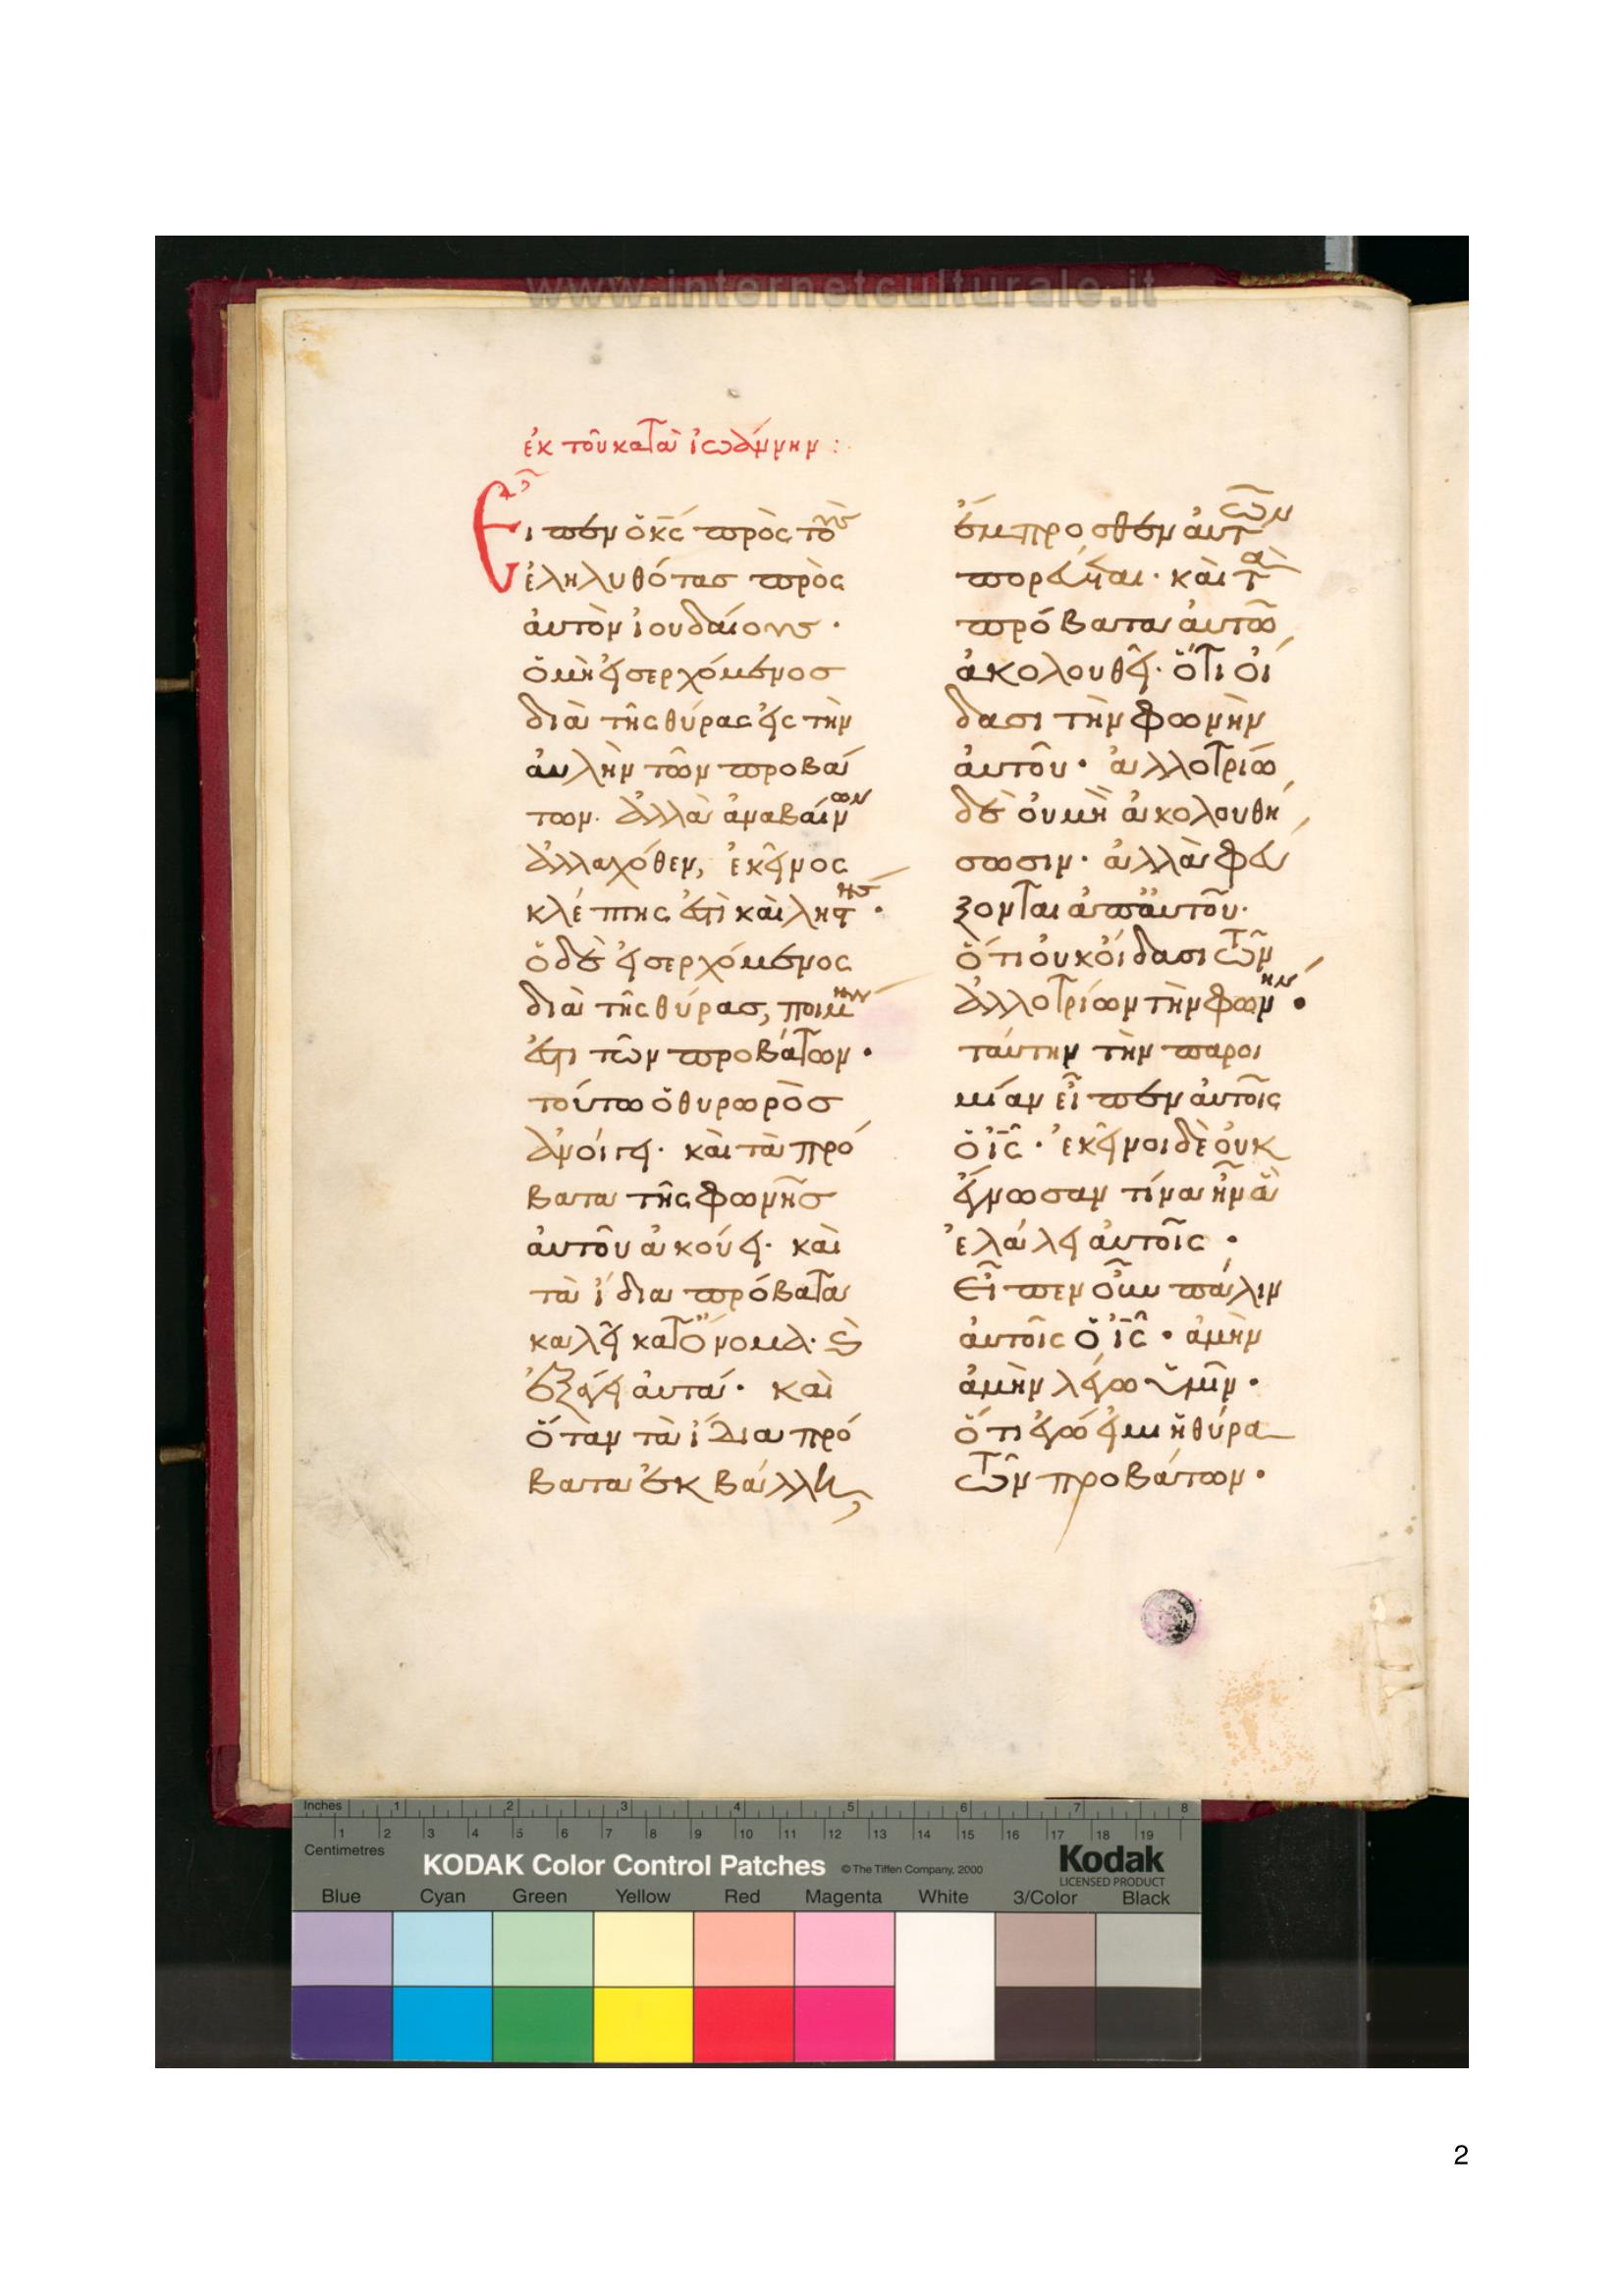 www.internetculturale.it
ἐκ τοῦ κατὰ ἰωάννην :
Εἶπεν ὁ κ̅ς̅ πρὸς τοὺς
ἐληλυθότας πρὸς
αὐτὸν ἰουδαίους ·
ὁ μὴ εἰσερχόμενος
διὰ τῆς θύρας εἰς τὴν
αὐλὴν τῶν προβά
των · ἀλλὰ ἀναβαίνων
ἀλλαχόθεν, ἐκεῖνος
κλέπτης ἐστὶ καὶ ληστής ·
ὁ δὲ εἰσερχόμενος
διὰ τῆς θύρας, ποιμήν
ἐστι τῶν προβάτων ·
τούτω ὁ θυρωρὸς
ἀνοίγει · καὶ τὰ πρό
βατα τῆς φωνῆς
αὐτοῦ ἀκούει · καὶ
τὰ ἴδια πρόβατα
καλεῖ κατ' ὄνομα · ϗ
ἐξάγει αὐτά · καὶ
ὅταν τὰ ἴδια πρό
βατα ἐκβάλλη,
ἔμπροσθεν αὐτῶν
πορεύεται · καὶ τὰ
πρόβατα αὐτῶ
ἀκολουθεῖ · ὅτι οἴ
δασι τὴν φωνὴν
αὐτοῦ · ἀλλοτρίω
δὲ οὐ μὴ ἀκολουθή
σωσιν · ἀλλὰ φεύ
ξονται ἀπ' αὐτοῦ ·
ὅτι οὐκ οἴδασι τῶν
ἀλλοτρίων τὴν φωνήν ·
ταύτην τὴν παροι
μίαν εἶπεν αὐτοῖς
ὁ ι̅ς̅ · ἐκεῖνοι δὲ οὐκ
ἔγνωσαν τίνα ἦν ἃ
ἐλάλει αὐτοῖς ·
Εἶπεν οὖν πάλιν
αὐτοῖς ὁ ι̅ς̅ · ἀμὴν
ἀμὴν λέγω ὑμῖν ·
ὅτι ἐγώ εἰμι ἡ θύρα
τῶν προβάτων ·
Inches 1 2 3 4 5 6 7 8
1 2 3 4 5 6 7 8 9 10 11 12 13 14 15 16 17 18 19
Centimetres
KODAK Color Control Patches © The Tiffen Company, 2000 Kodak
LICENSED PRODUCT
Blue Cyan Green Yellow Red Magenta White 3/Color Black
2